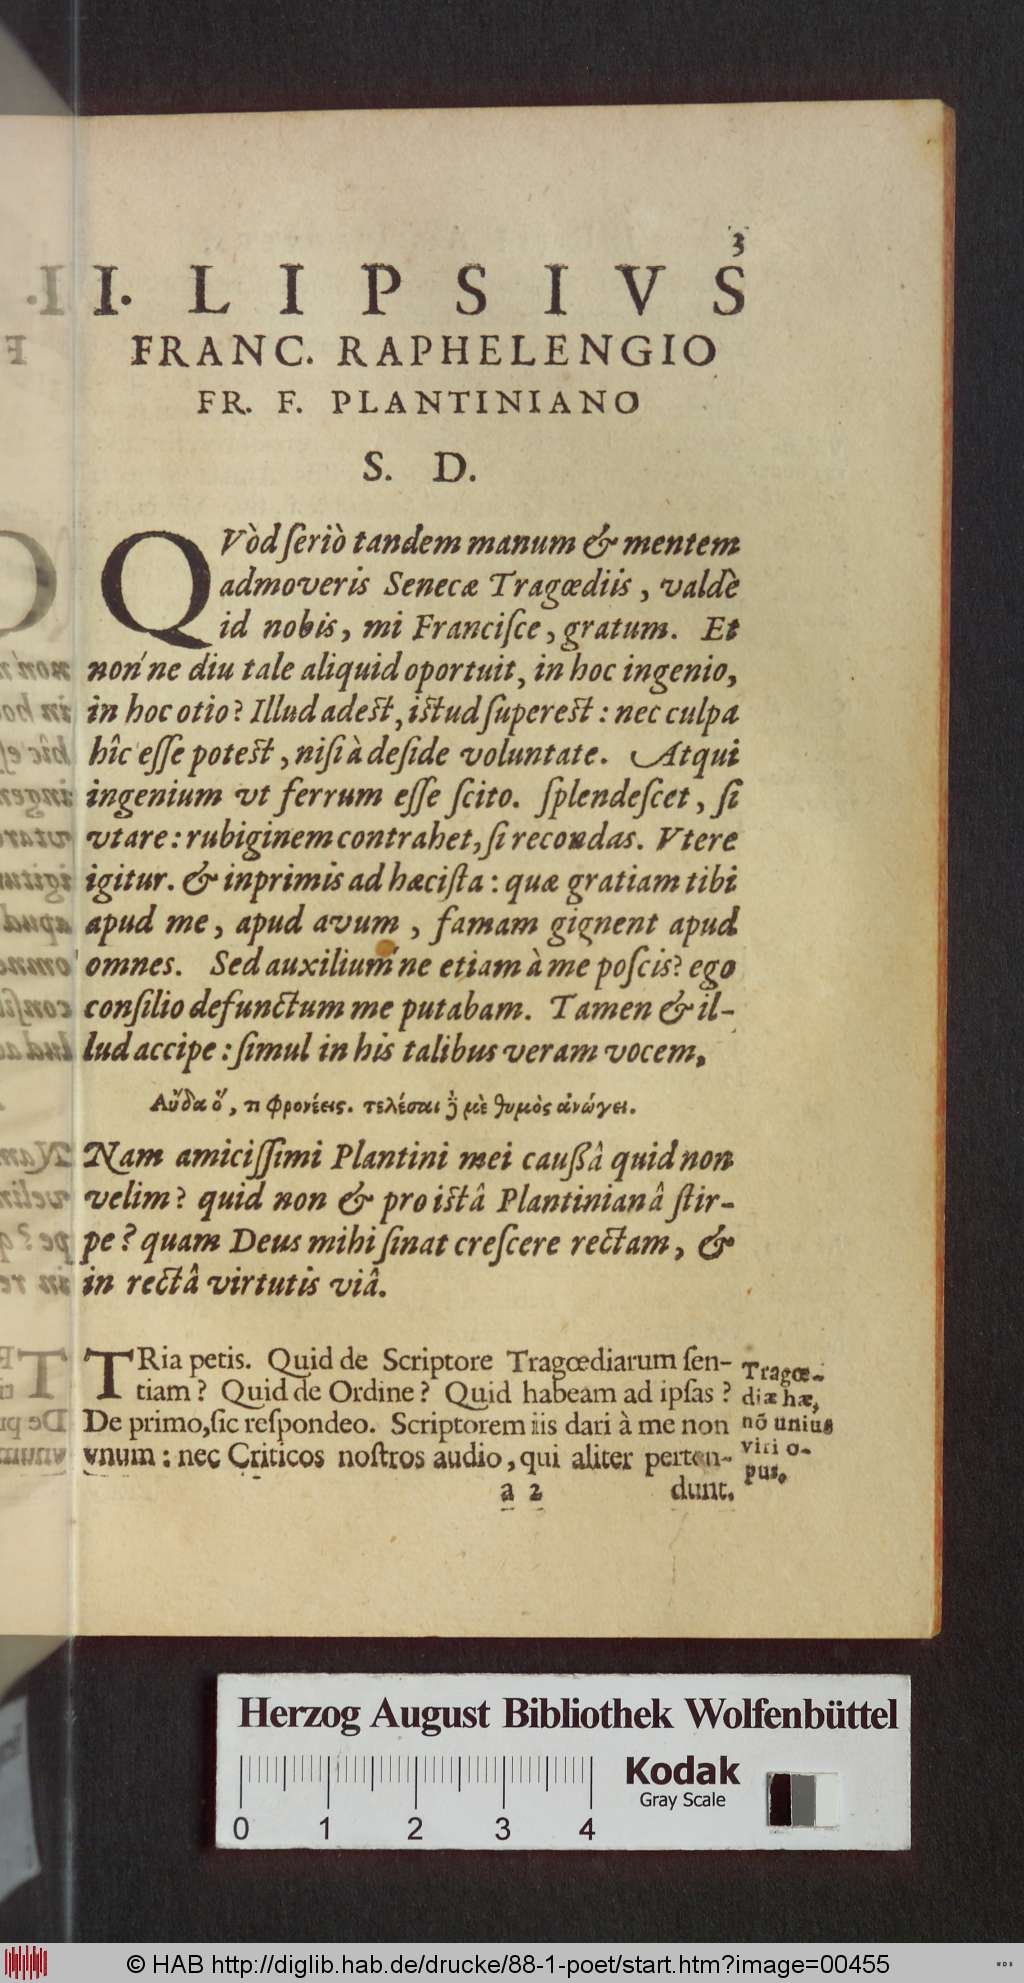 3
I. LIPSIVS
FRANC. RAPHELENGIO
FR. F. PLANTINIANO
S. D.
QVòd ſeriò tandem manum & mentem
admoveris Senecæ Tragœdiis, valdè
id nobis, mi Franciſce, gratum. Et
non'ne diu tale aliquid oportuit, in hoc ingenio,
in hoc otio? Illud adest, istud ſuperest: nec culpa
hîc eſſe potest, niſi à deſide voluntate. Atqui
ingenium vt ferrum eſſe ſcito. ſplendeſcet, ſi
vtare: rubiginem contrahet, ſi recondas. Vtere
igitur. & inprimis ad hæc iſta: quæ gratiam tibi
apud me, apud avum, famam gignent apud
omnes. Sed auxilium'ne etiam à me poſcis? ego
conſilio defunctum me putabam. Tamen & il-
lud accipe: ſimul in his talibus veram vocem,
Αὔδα ὅ, τι φρονέεις. τελέσαι ϗ̀ μὲ θυμὸς ἀνώγει.
Nam amiciſſimi Plantini mei caußâ quid non
velim? quid non & pro istâ Plantinianâ ſtir-
pe? quam Deus mihi ſinat creſcere rectam, &
in rectâ virtutis viâ.
TRia petis. Quid de Scriptore Tragœdiarum ſen-
tiam? Quid de Ordine? Quid habeam ad ipſas?
De primo, ſic reſpondeo. Scriptorem iis dari à me non
vnum: nec Criticos noſtros audio, qui aliter perten-
a 2 dunt.
Tragœ-
diæ hæ,
nõ unius
viri o-
pus.
Herzog August Bibliothek Wolfenbüttel
Kodak
Gray Scale
0 1 2 3 4
© HAB http://diglib.hab.de/drucke/88-1-poet/start.htm?image=00455